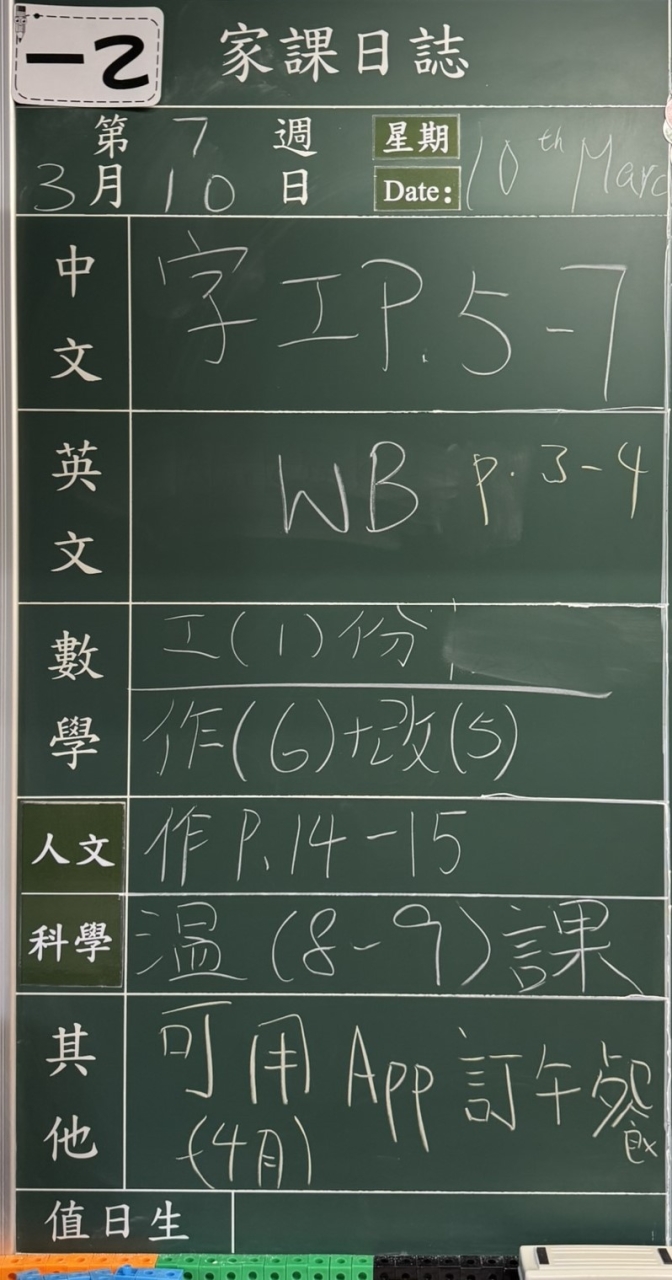 一乙
家課日誌
第 7 週 星期
3月10日 Date: 10th Marc
中文 字工P.5-7
英文 WB p.3-4
數學 工(1)份
作(6)+改(5)
人文 作P.14-15
科學 温(8-9)課
其他 可用App訂午餐
(4月)
值日生